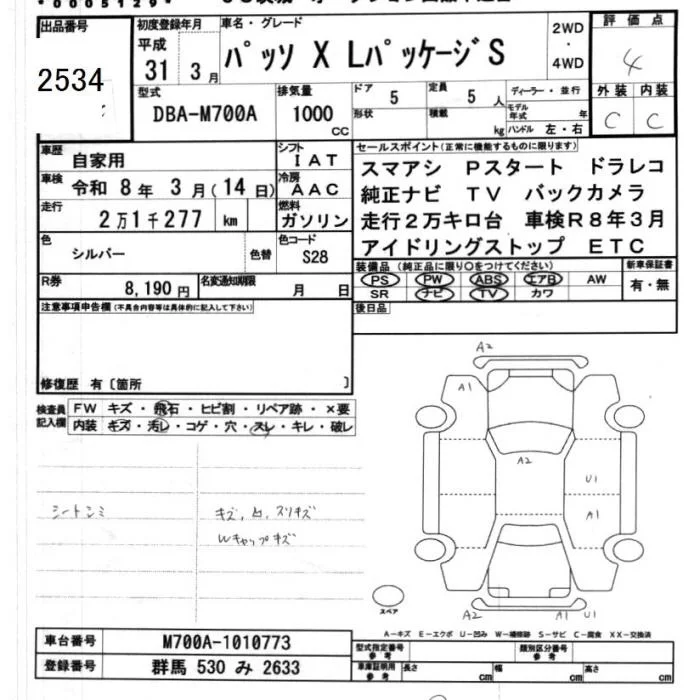 *0005129*
出品番号
2534
初度登録年月
平成
31 3月
車名・グレード
パッソ X LパッケージS
2WD
・
4WD
評価点
4
外装 内装
C C
型式
DBA-M700A
排気量
1000
CC
ドア
5
定員
5 人
形状
積載
kg
ディーラー・並行
モデル年式 年
ハンドル 左・右
車歴
自家用
シフト
IAT
車検
令和 8年 3月(14日)
冷房
AAC
走行
2万1千277 km
燃料
ガソリン
色
シルバー
色替
色コード
S28
R券
8,190円
名変通知期限
月 日
セールスポイント(正常に機能するものに限ります)
スマアシ Pスタート ドラレコ
純正ナビ TV バックカメラ
走行2万キロ台 車検R8年3月
アイドリングストップ ETC
装備品(純正品に限り○をつけてください)
PS PW ABS エアB AW
SR ナビ TV カワ
新車保証書
有・無
後日品
注意事項申告欄(不具合内容等は具体的に記入して下さい)
修復歴 有〔箇所 〕
検査員記入欄
FW キズ・飛石・ヒビ割・リペア跡・×要
内装 キズ・汚レ・コゲ・穴・スレ・キレ・破レ
シートシミ
キズ、凹、スリキズ
Wキャップキズ
A2
A1
A2
U1
A1
A2
A1 U1
スペア
A-キズ E-エクボ U-凹み W-補修跡 S-サビ C-腐食 XX-交換済
車台番号
M700A-1010773
登録番号
群馬 530 み 2633
型式指定番号
参考
類別区分番号
参考
車庫証明用
参考
長さ cm
幅 cm
高さ cm